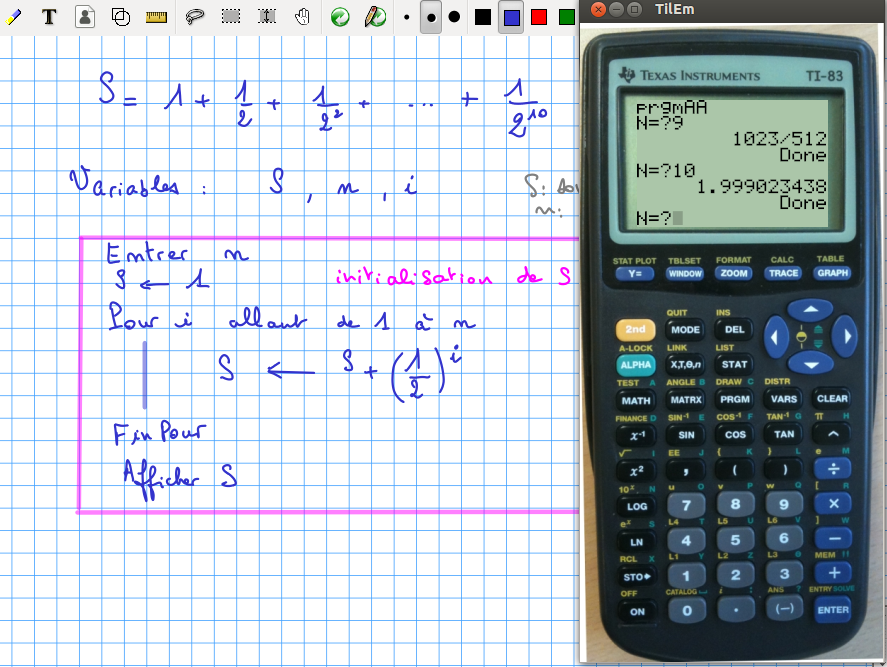 S = 1 + 1/2 + 1/2² + ... + 1/2¹⁰
Variables : S , n , i
S:
n:
Entrer n
S ← 1 initialisation de S
Pour i allant de 1 à n
S ← S + (1/2)^i
Fin Pour
Afficher S
TilEm
TEXAS INSTRUMENTS TI-83
prgmAA
N=?9
1023/512
Done
N=?10
1.999023438
Done
N=?
STAT PLOT TBLSET FORMAT CALC TABLE
Y= WINDOW ZOOM TRACE GRAPH
QUIT INS
2nd MODE DEL
A-LOCK LINK LIST
ALPHA X,T,θ,n STAT
TEST A ANGLE B DRAW C DISTR
MATH MATRX PRGM VARS CLEAR
FINANCE D SIN⁻¹ E COS⁻¹ F TAN⁻¹ G π H
x⁻¹ SIN COS TAN ^
√ I EE J { K } L e M
x² , ( ) ÷
10ˣ N u O v P w Q [ R
LOG 7 8 9 ×
eˣ S L4 T L5 U L6 V ] W
LN 4 5 6 −
RCL X L1 Y L2 Z L3 θ MEM "
STO▸ 1 2 3 +
OFF CATALOG ⎵ i : ANS ? ENTRY SOLVE
ON 0 . (−) ENTER